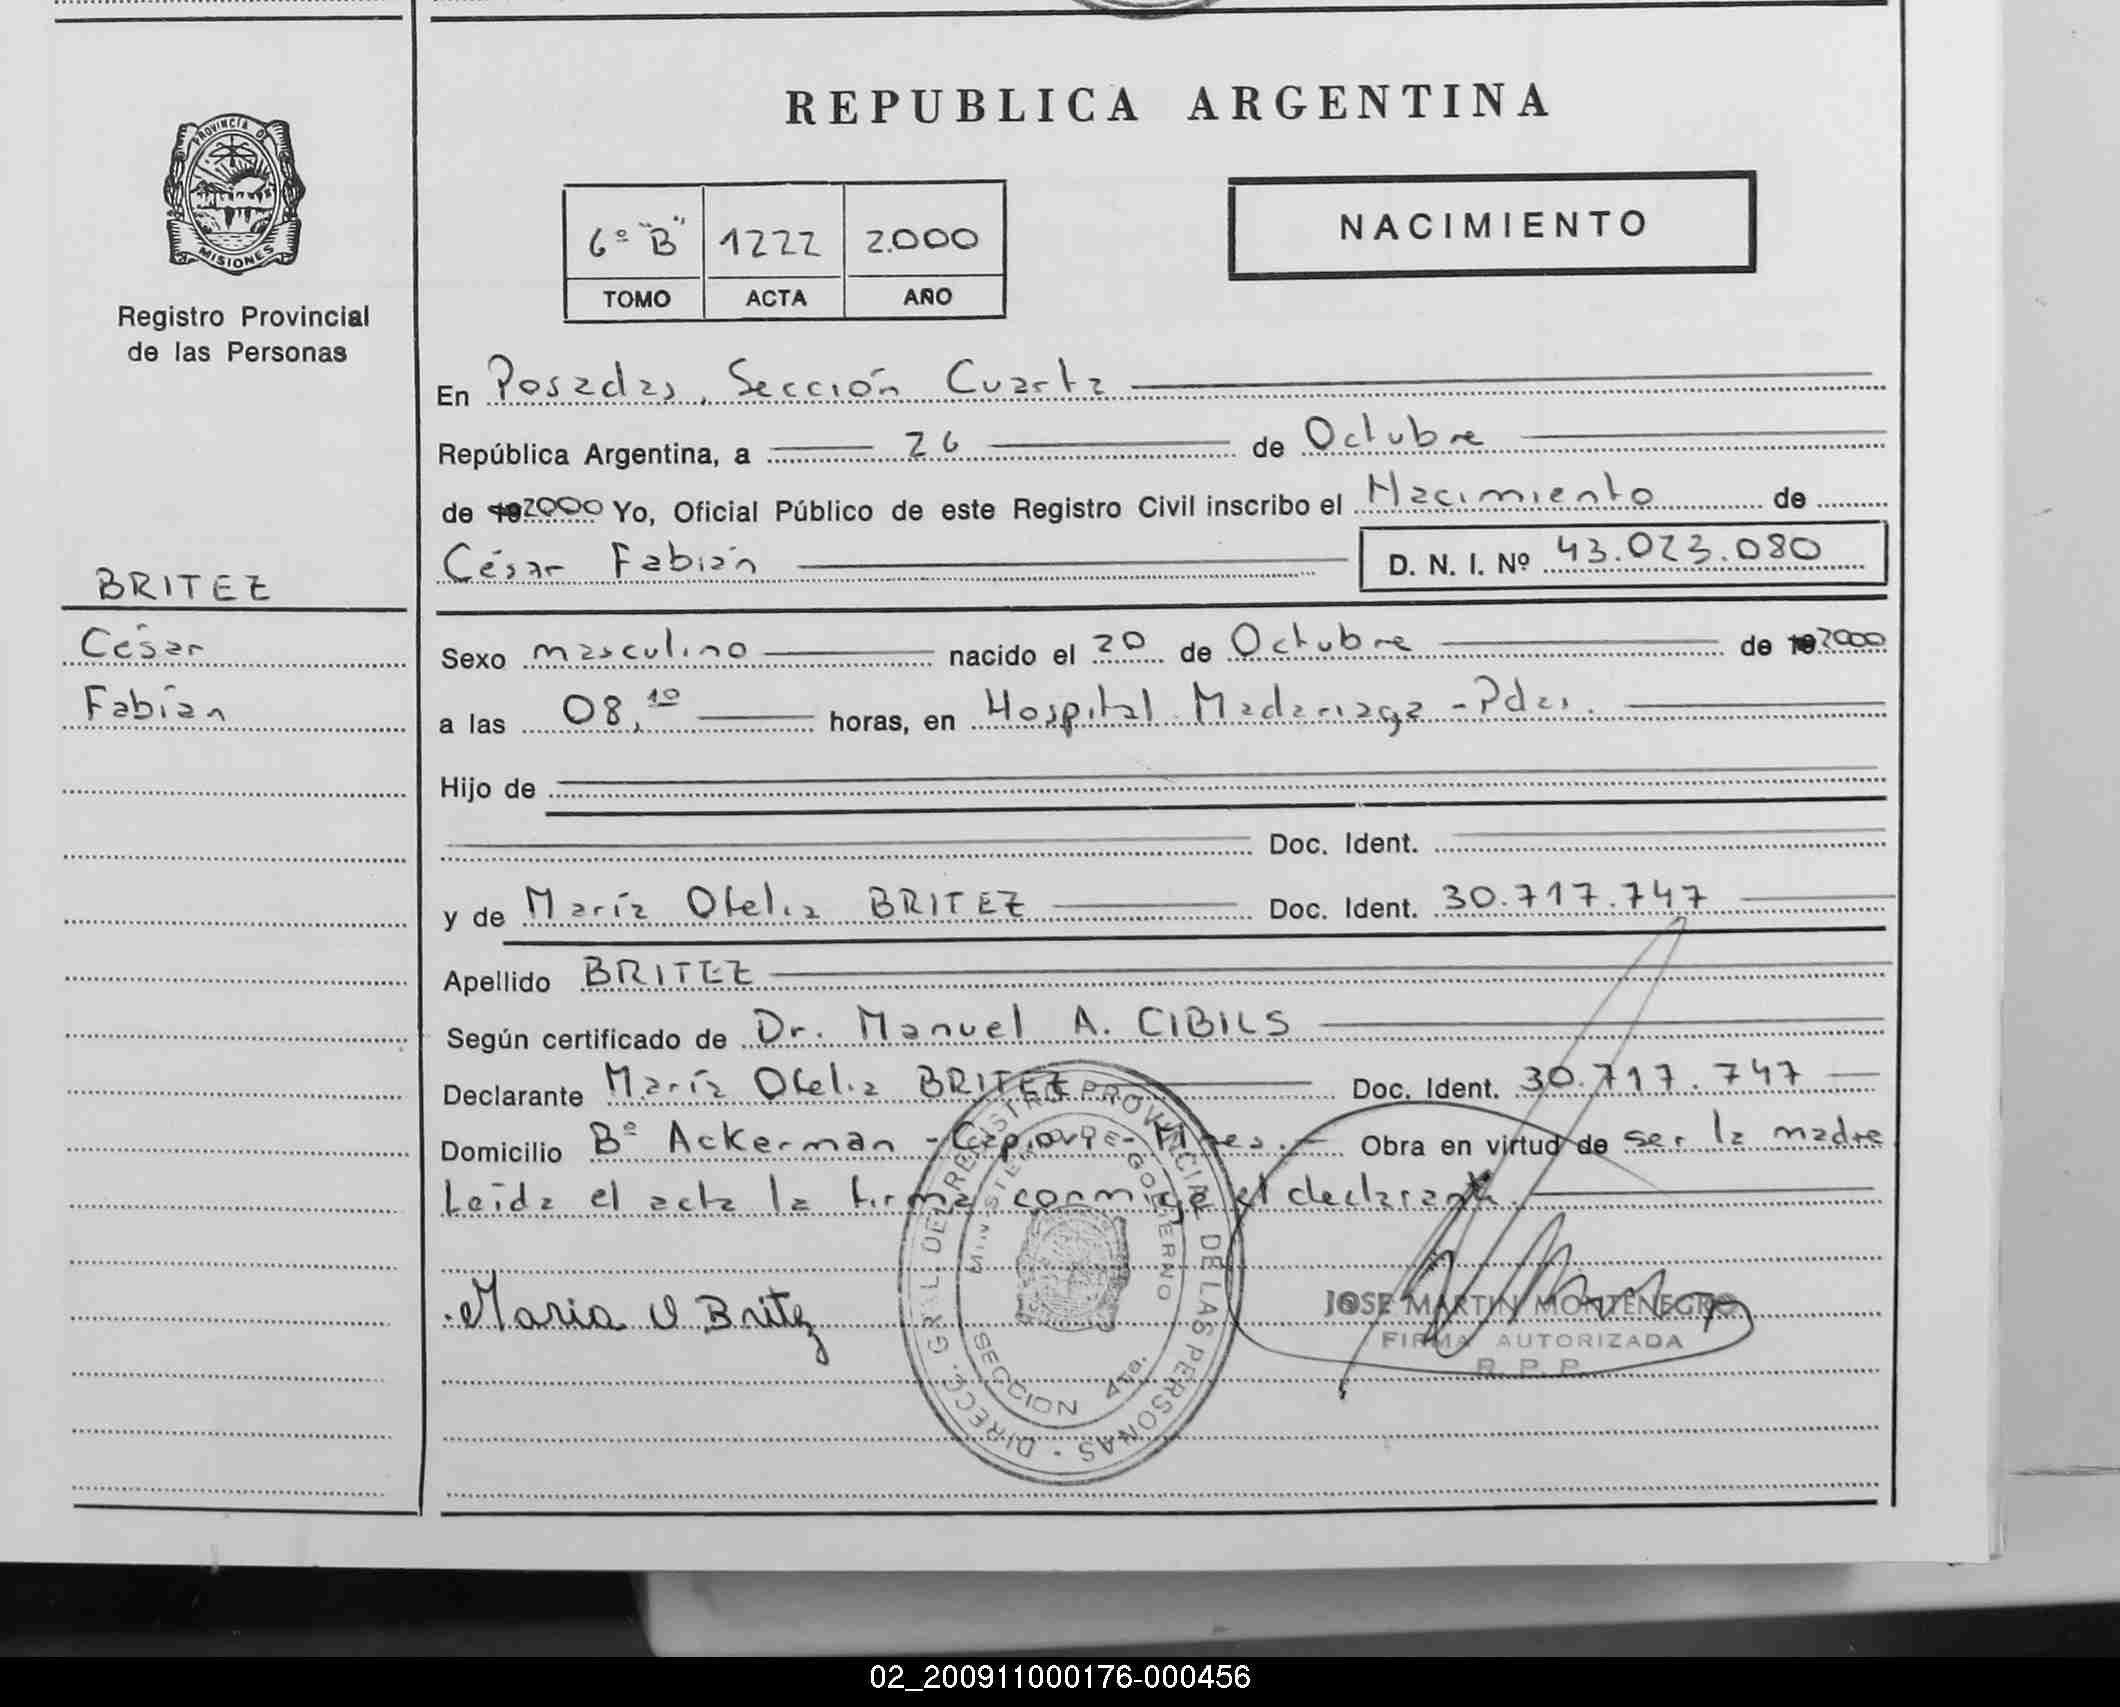 PROVINCIA DE
MISIONES
Registro Provincial
de las Personas
BRITEZ
César
Fabián
REPUBLICA ARGENTINA
6º "B" 1222 2.000
TOMO ACTA AÑO
NACIMIENTO
En Posadas, Sección Cuarta
República Argentina, a 26 de Octubre
de 2000 Yo, Oficial Público de este Registro Civil inscribo el Nacimiento de
César Fabián D. N. I. Nº 43.023.080
Sexo masculino nacido el 20 de Octubre de 2000
a las 08,10 horas, en Hospital Madariaga - Pdas.
Hijo de
Doc. Ident.
y de María Ofelia BRITEZ Doc. Ident. 30.717.747
Apellido BRITEZ
Según certificado de Dr. Manuel A. CIBILS
Declarante María Ofelia BRITEZ Doc. Ident. 30.717.747
Domicilio Bº Ackerman - Capioví - Mnes. - Obra en virtud de ser la madre
Leída el acta la firma conmigo el declarante.
Maria O Britez
DIRECC. GRAL DEL REGISTRO PROVINCIAL DE LAS PERSONAS
MINISTERIO DE GOBIERNO
SECCION 4ta.
JOSE MARTIN MONTENEGRO
FIRMA AUTORIZADA
R. P. P.
02_200911000176-000456